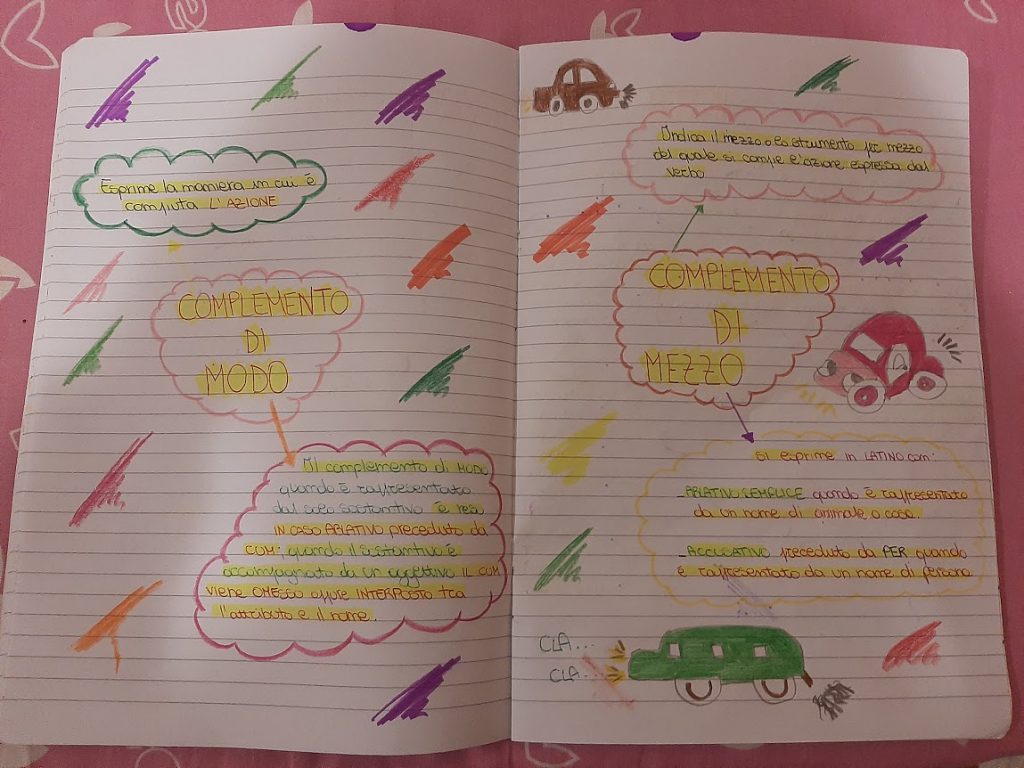 Esprime la maniera in cui è
compiuta L'AZIONE
COMPLEMENTO
DI
MODO
Il complemento di MODO
quando è rappresentato
dal solo sostantivo è reso
IN CASO ABLATIVO preceduto da
CUM: quando il sostantivo è
accompagnato da un aggettivo IL CUM
viene OMESSO oppure INTERPOSTO tra
l'attributo e il nome.
Indica il mezzo o lo strumento per mezzo
del quale si compie l'azione espressa dal
verbo
COMPLEMENTO
DI
MEZZO
Si esprime in LATINO con:
-ABLATIVO SEMPLICE quando è rappresentato
da un nome di animale o cosa.
-ACCUSATIVO preceduto da PER quando
è rappresentato da un nome di persona
CLA...
CLA...